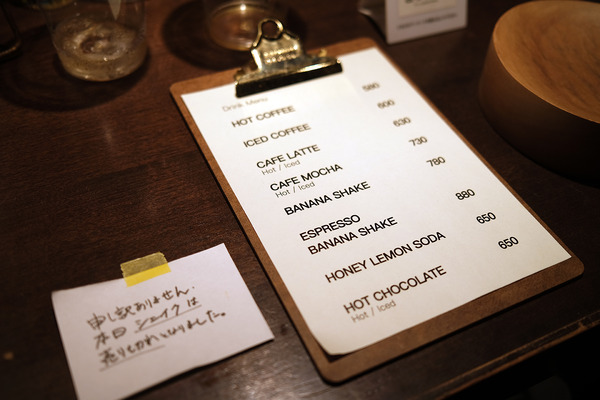 Drink Menu
HOT COFFEE 580
ICED COFFEE 600
CAFE LATTE 630
Hot / Iced
CAFE MOCHA 730
Hot / Iced
BANANA SHAKE 780
ESPRESSO
BANANA SHAKE 880
HONEY LEMON SODA 650
HOT CHOCOLATE 650
Hot / Iced
申し訳ありません.
本日 シェイクは
売りきれとなりました。